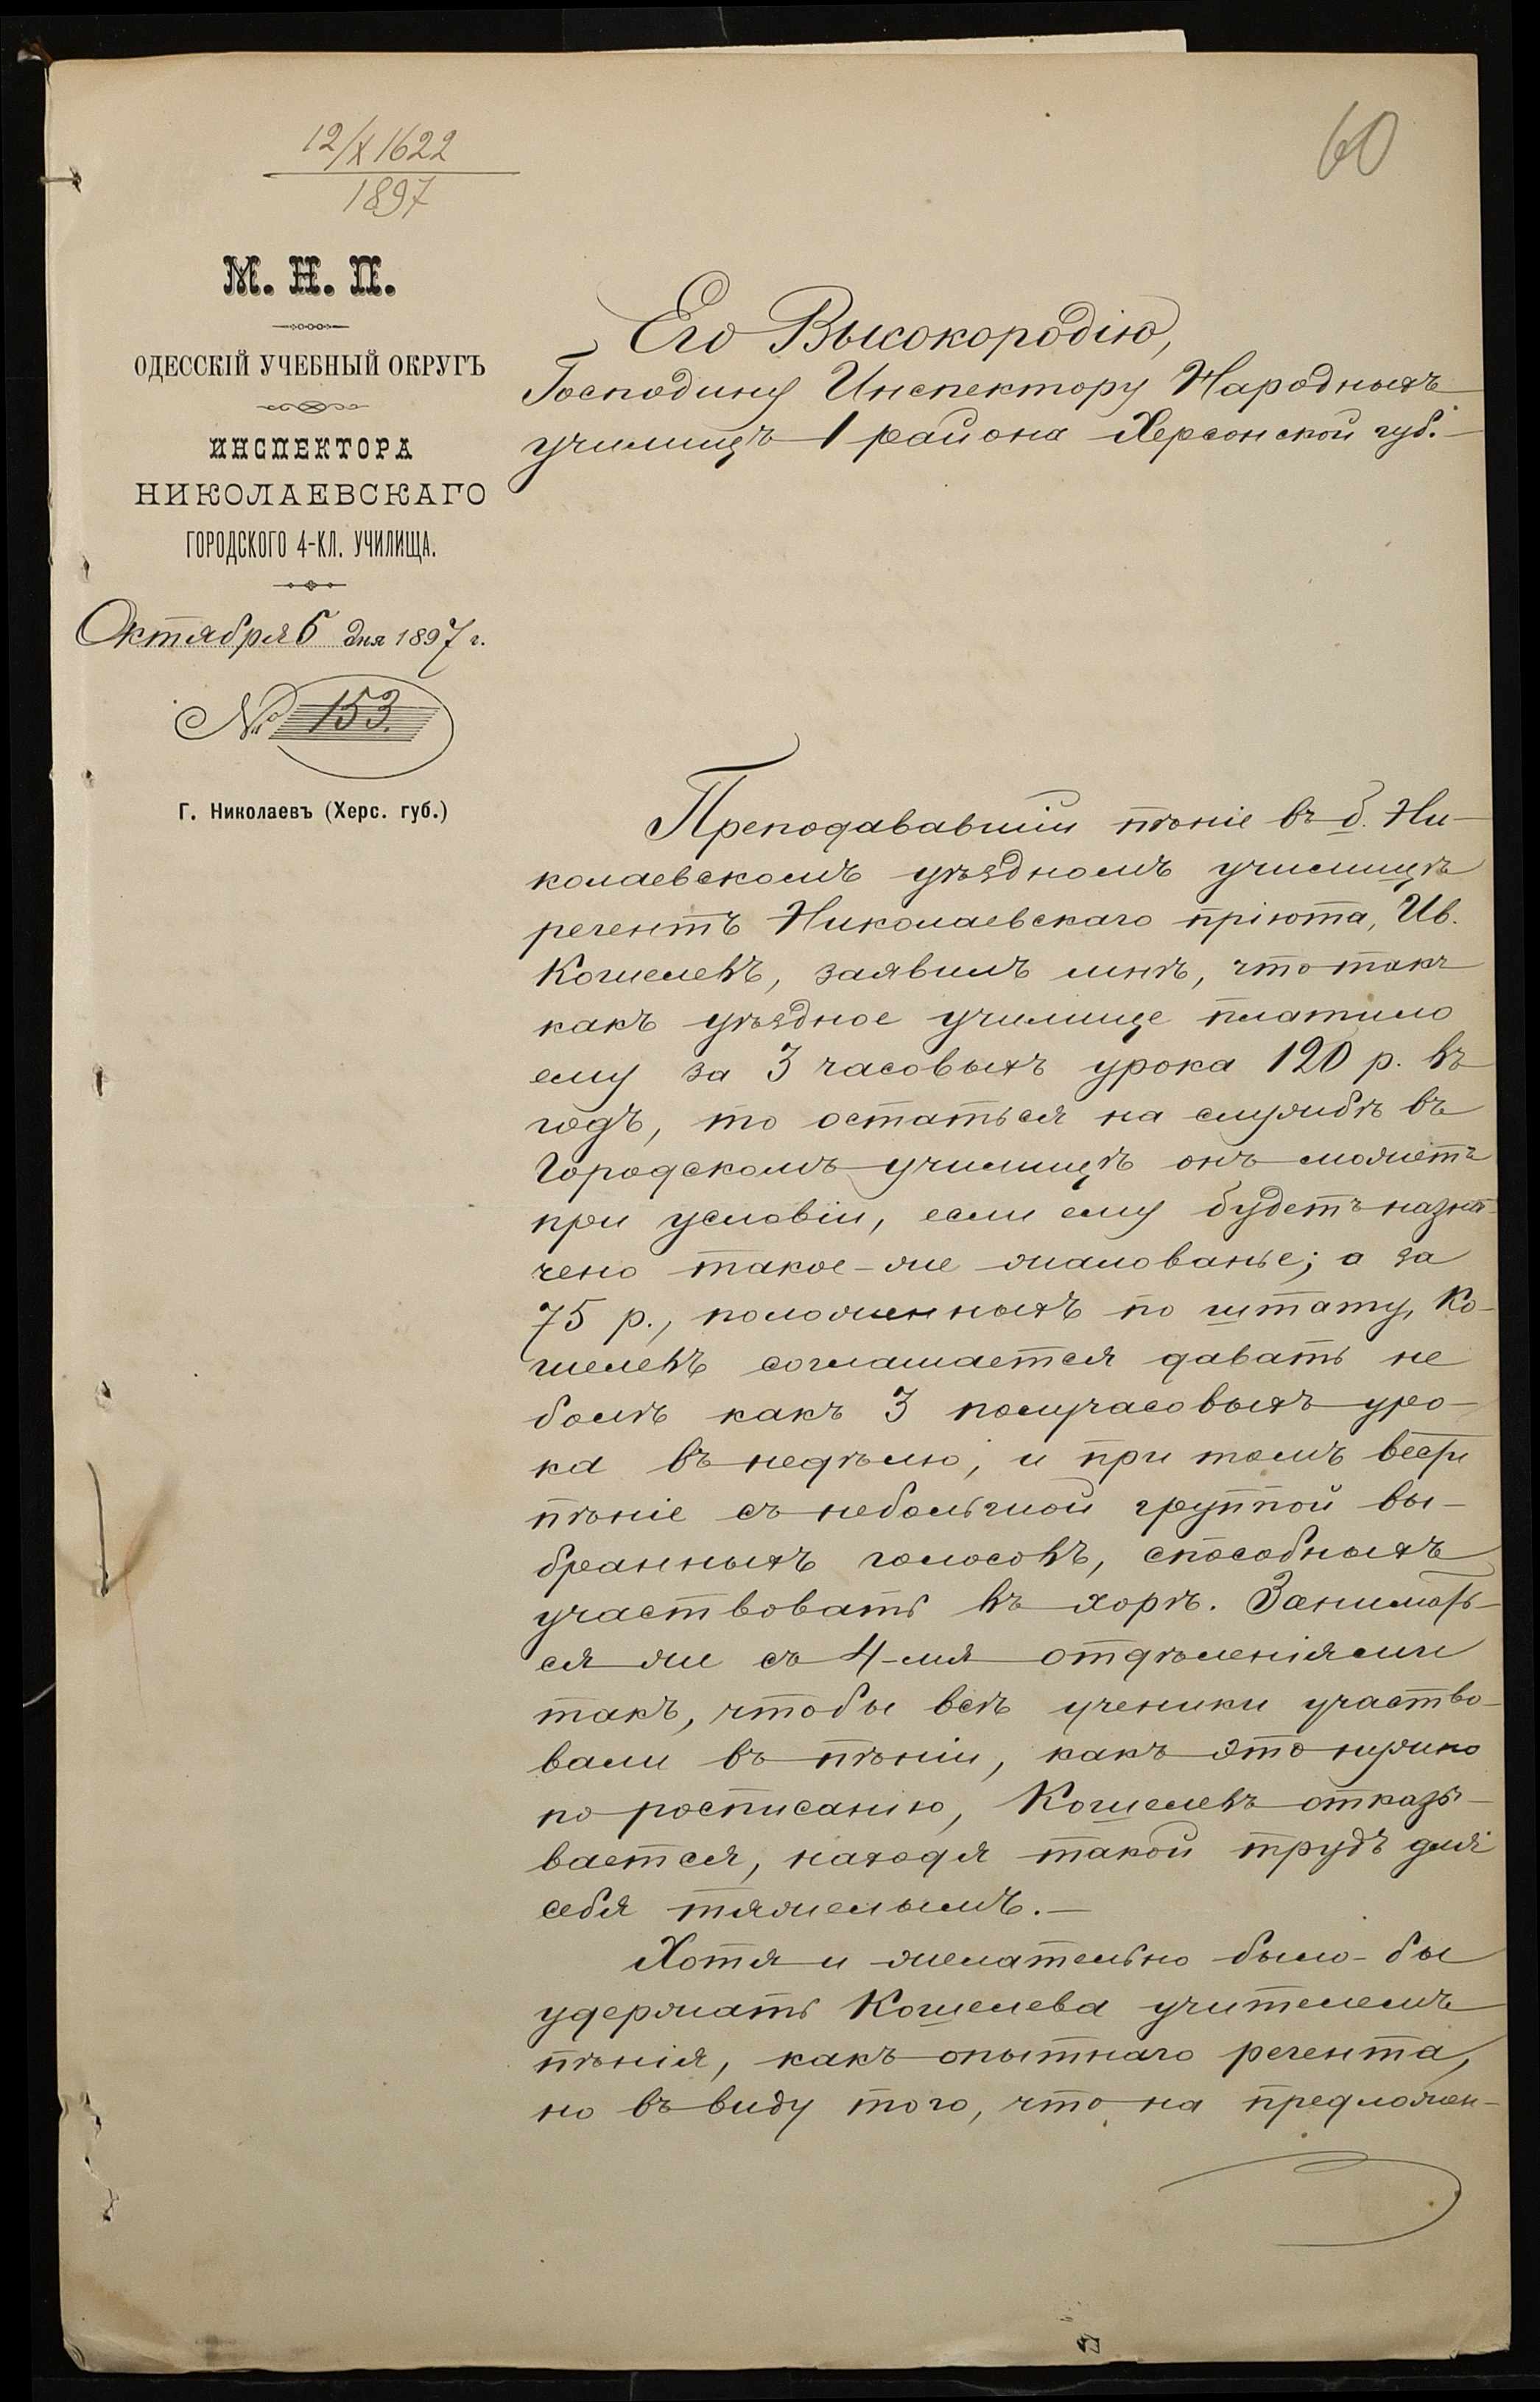 12/X 1622
1897
60
М. Н. П.
ОДЕССКІЙ УЧЕБНЫЙ ОКРУГЪ
ИНСПЕКТОРА
НИКОЛАЕВСКАГО
ГОРОДСКОГО 4-КЛ. УЧИЛИЩА.
Октября 6 дня 1897 г.
№ 153.
Г. Николаевъ (Херс. губ.)
Его Высокородію,
Господину Инспектору Народныхъ
училищъ 1 района Херсонской губ.
Преподававшій пѣніе въ б. Ни-
колаевскомъ уѣздномъ училищѣ
регентъ Николаевскаго пріюта, Ив.
Кошелевъ, заявилъ мнѣ, что такъ
какъ уѣздное училище платило
ему за 3 часовыхъ урока 120 р. въ
годъ, то остаться на службѣ въ
Городскомъ училищѣ онъ можетъ
при условіи, если ему будетъ назна-
чено такое-же жалованье; а за
75 р., положенныхъ по штату, Ко-
шелевъ соглашается давать не
болѣ какъ 3 получасовыхъ уро-
ка въ недѣлю, и при томъ вести
пѣніе съ небольшой группой вы-
бранныхъ голосовъ, способныхъ
участвовать въ хорѣ. Занимать-
ся же съ 4-мя отдѣленіями
такъ, чтобы всѣ ученики участво-
вали въ пѣніи, какъ это нужно
по росписанію, Кошелевъ отказы-
вается, находя такой трудъ для
себя тяжелымъ.—
Хотя и желательно было-бы
удержать Кошелева учителемъ
пѣнія, какъ опытнаго регента,
но въ виду того, что на предложен-